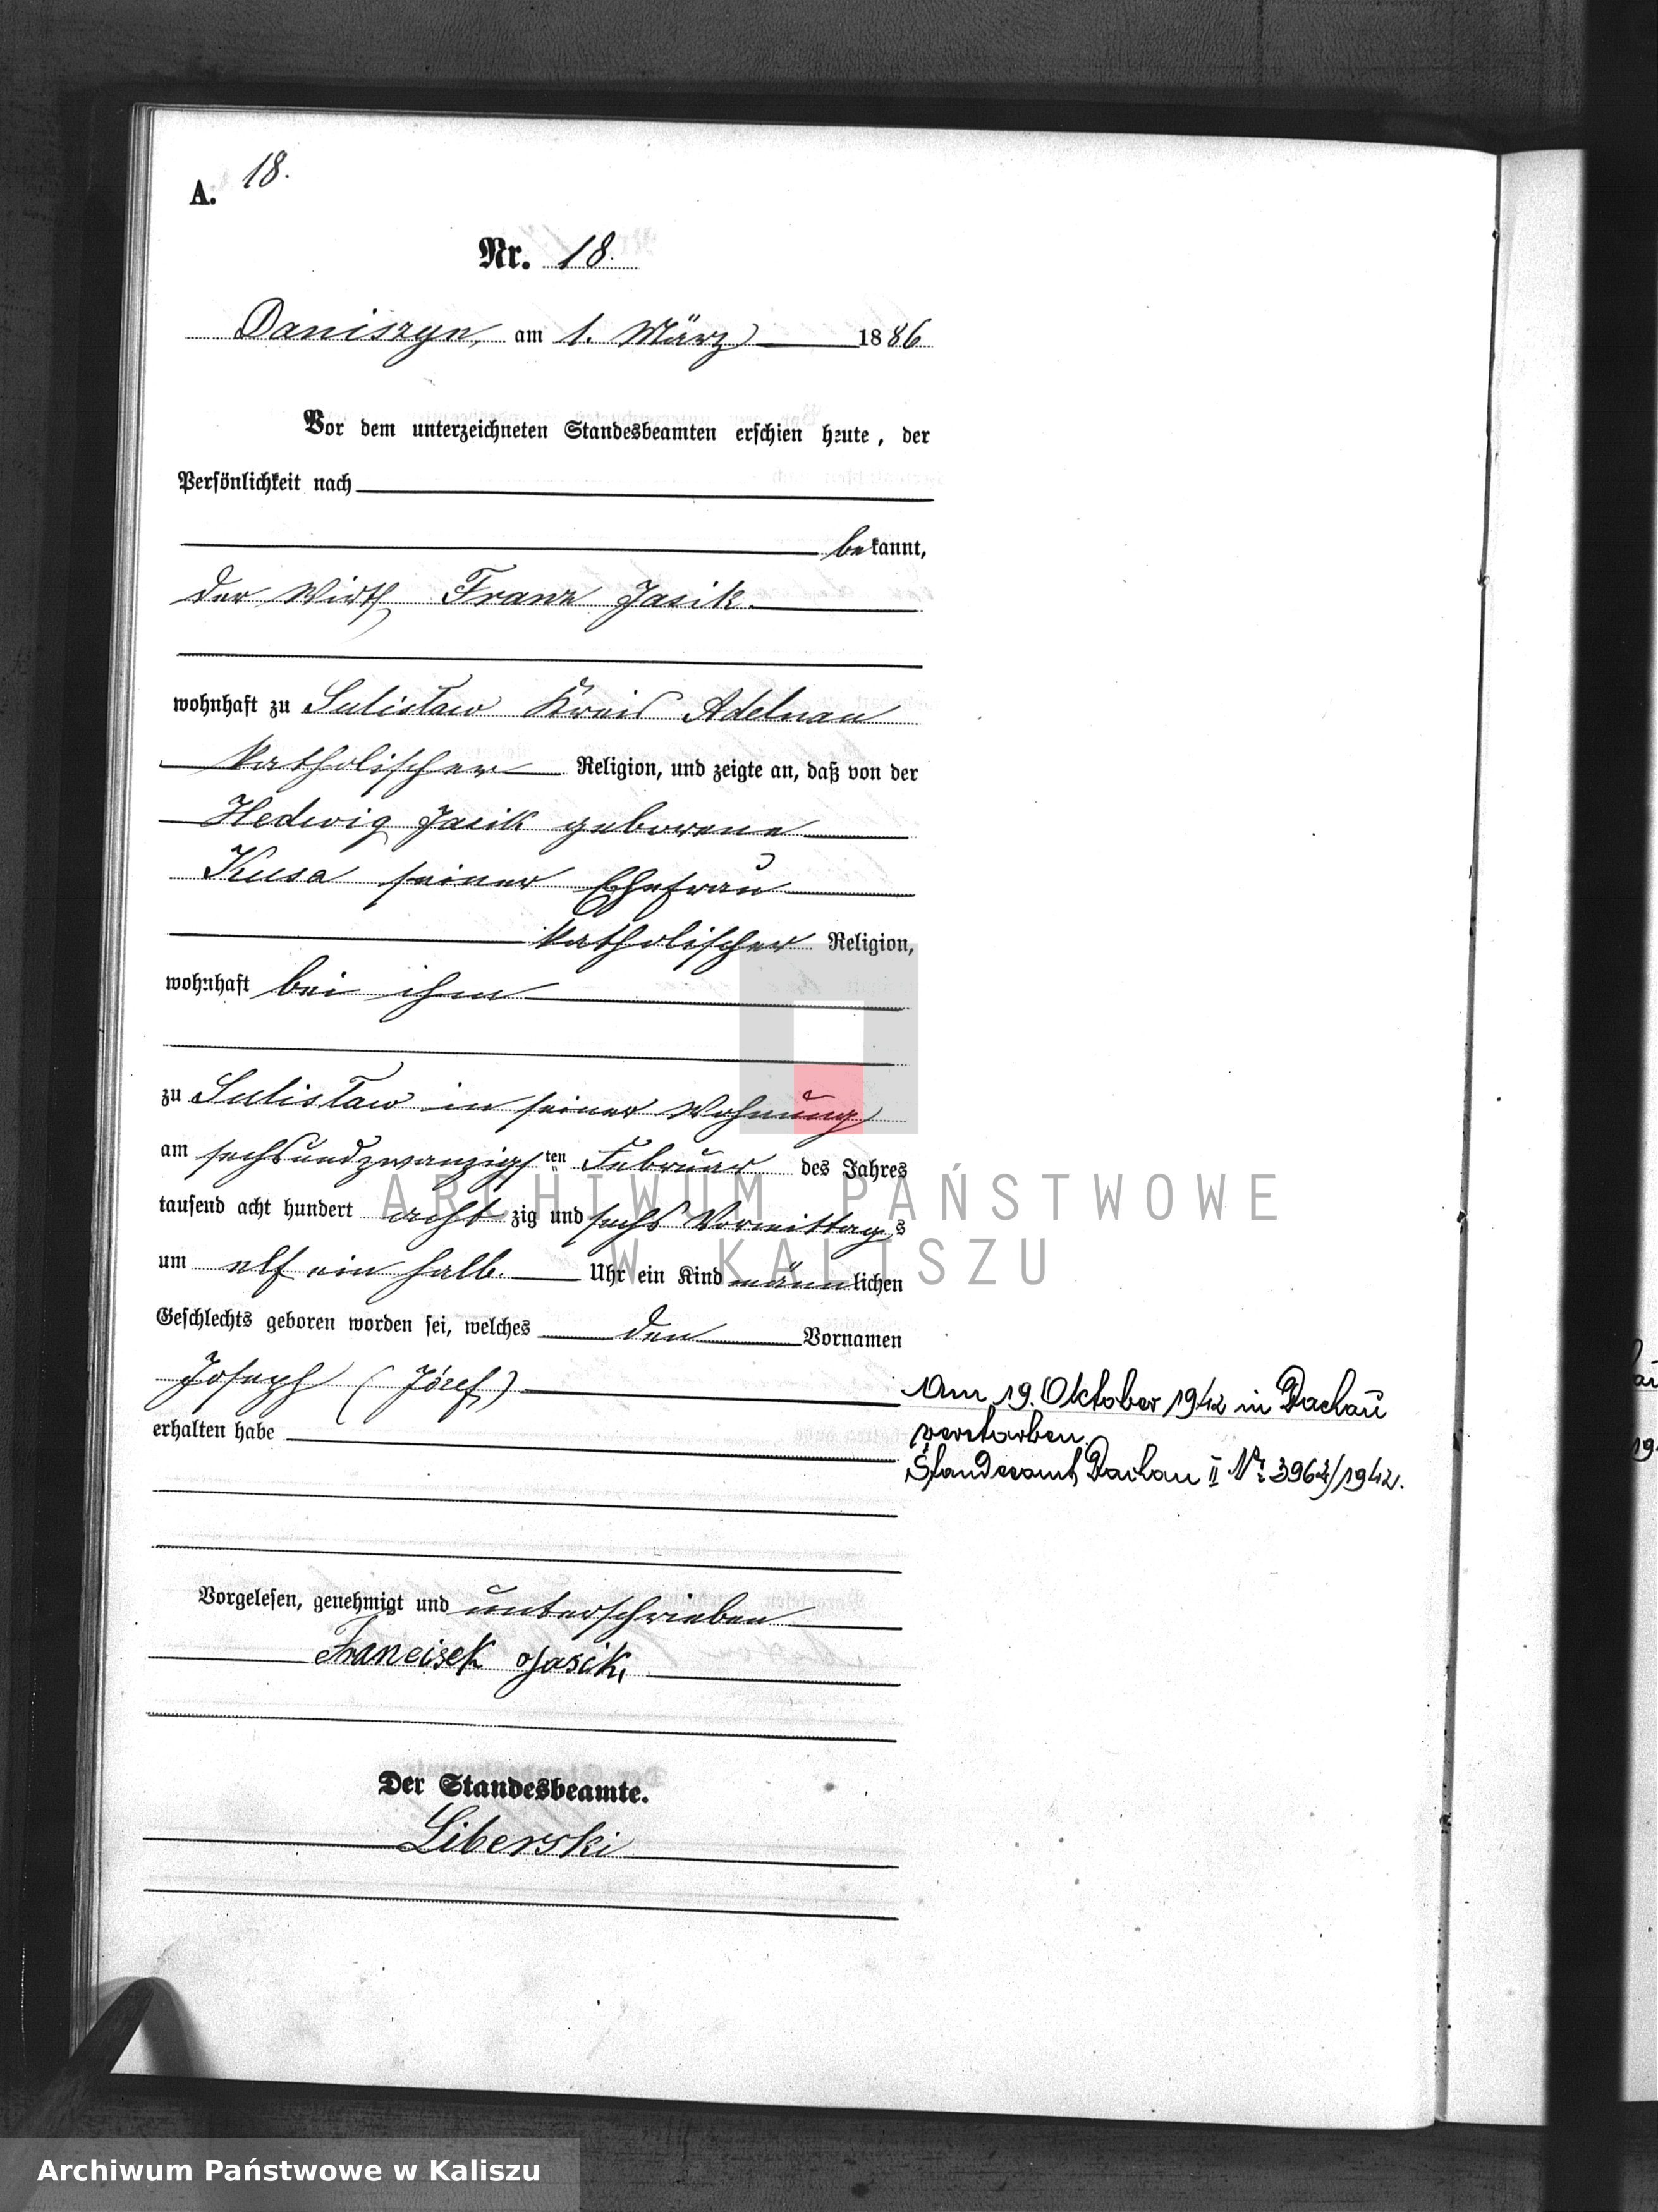 18.
A.
Nr. 18.
Daniszyn, am 1. März 1886
Vor dem unterzeichneten Standesbeamten erschien heute, der
Persönlichkeit nach
bekannt,
der Wirth Franz Jasik.
wohnhaft zu Sulisław Kreis Adelnau
katholischer Religion, und zeigte an, daß von der
Hedwig Jasik geborene
Kusa seiner Ehefrau
katholischer Religion,
wohnhaft bei ihm
zu Sulisław in seiner Wohnung
am sechsundzwanzigsten Februar des Jahres
tausend acht hundert achtzig und sechs Vormittags
um elf ein halb. Uhr ein Kind männlichen
Geschlechts geboren worden sei, welches den Vornamen
Joseph (Józef)
erhalten habe
Am 19. Oktober 1942 in Dachau
verstorben.
Standesamt Dachau II Nr. /1942.
Vorgelesen, genehmigt und unterschrieben
Francisek Jasik,
Der Standesbeamte.
Liberski
ARCHIWUM PAŃSTWOWE
W KALISZU
Archiwum Państwowe w Kaliszu